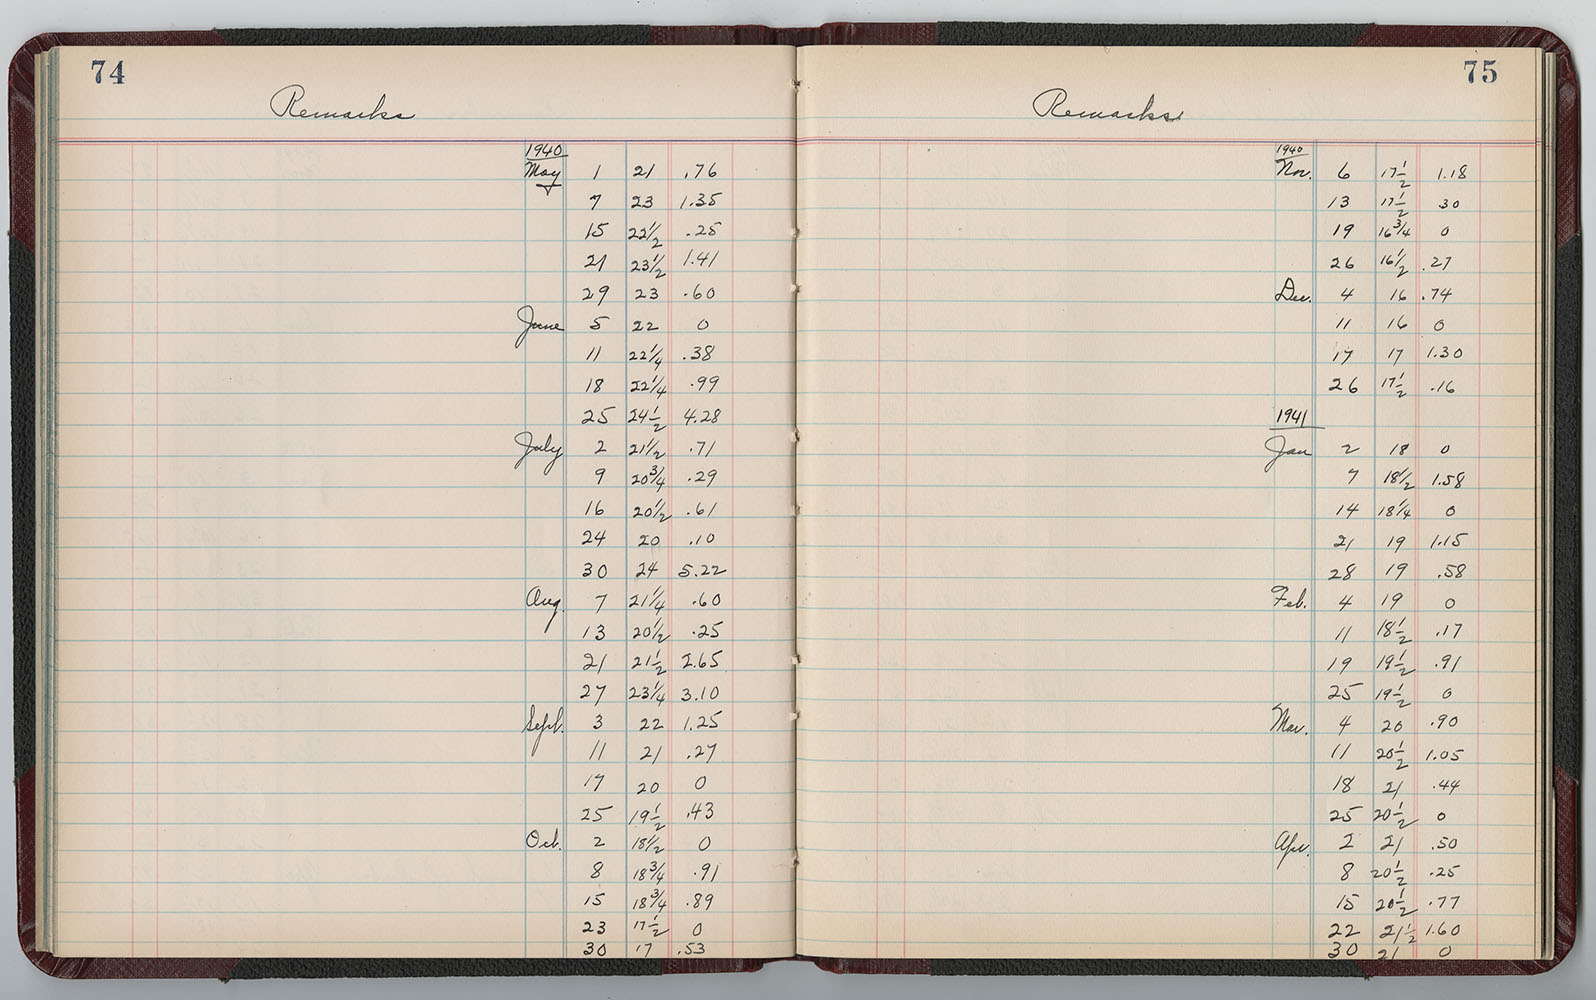 74
Remarks
1940
May 1 21 .76
7 23 1.35
15 22 1/2 .25
21 23 1/2 1.41
29 23 .60
June 5 22 0
11 22 1/4 .38
18 22 1/4 .99
25 24 1/2 4.28
July 2 21 1/2 .71
9 20 3/4 .29
16 20 1/2 .61
24 20 .10
30 24 5.22
Aug. 7 21 1/4 .60
13 20 1/2 .25
21 21 1/2 2.65
27 23 1/4 3.10
Sept. 3 22 1.25
11 21 .27
17 20 0
25 19 1/2 .43
Oct. 2 18 1/2 0
8 18 3/4 .91
15 18 3/4 .89
23 17 1/2 0
30 17 .53
75
Remarks
1940
Nov. 6 17 1/2 1.18
13 17 1/2 30
19 16 3/4 0
26 16 1/2 .27
Dec. 4 16 .74
11 16 0
17 17 1.30
26 17 1/2 .16
1941
Jan 2 18 0
7 18 1/2 1.58
14 18 1/4 0
21 19 1.15
28 19 .58
Feb. 4 19 0
11 18 1/2 .17
19 19 1/2 .91
25 19 1/2 0
Mar. 4 20 .90
11 20 1/2 1.05
18 21 .44
25 20 1/2 0
Apr. 2 21 .50
8 20 1/2 .25
15 20 1/2 .77
22 21 1/2 1.60
30 21 0